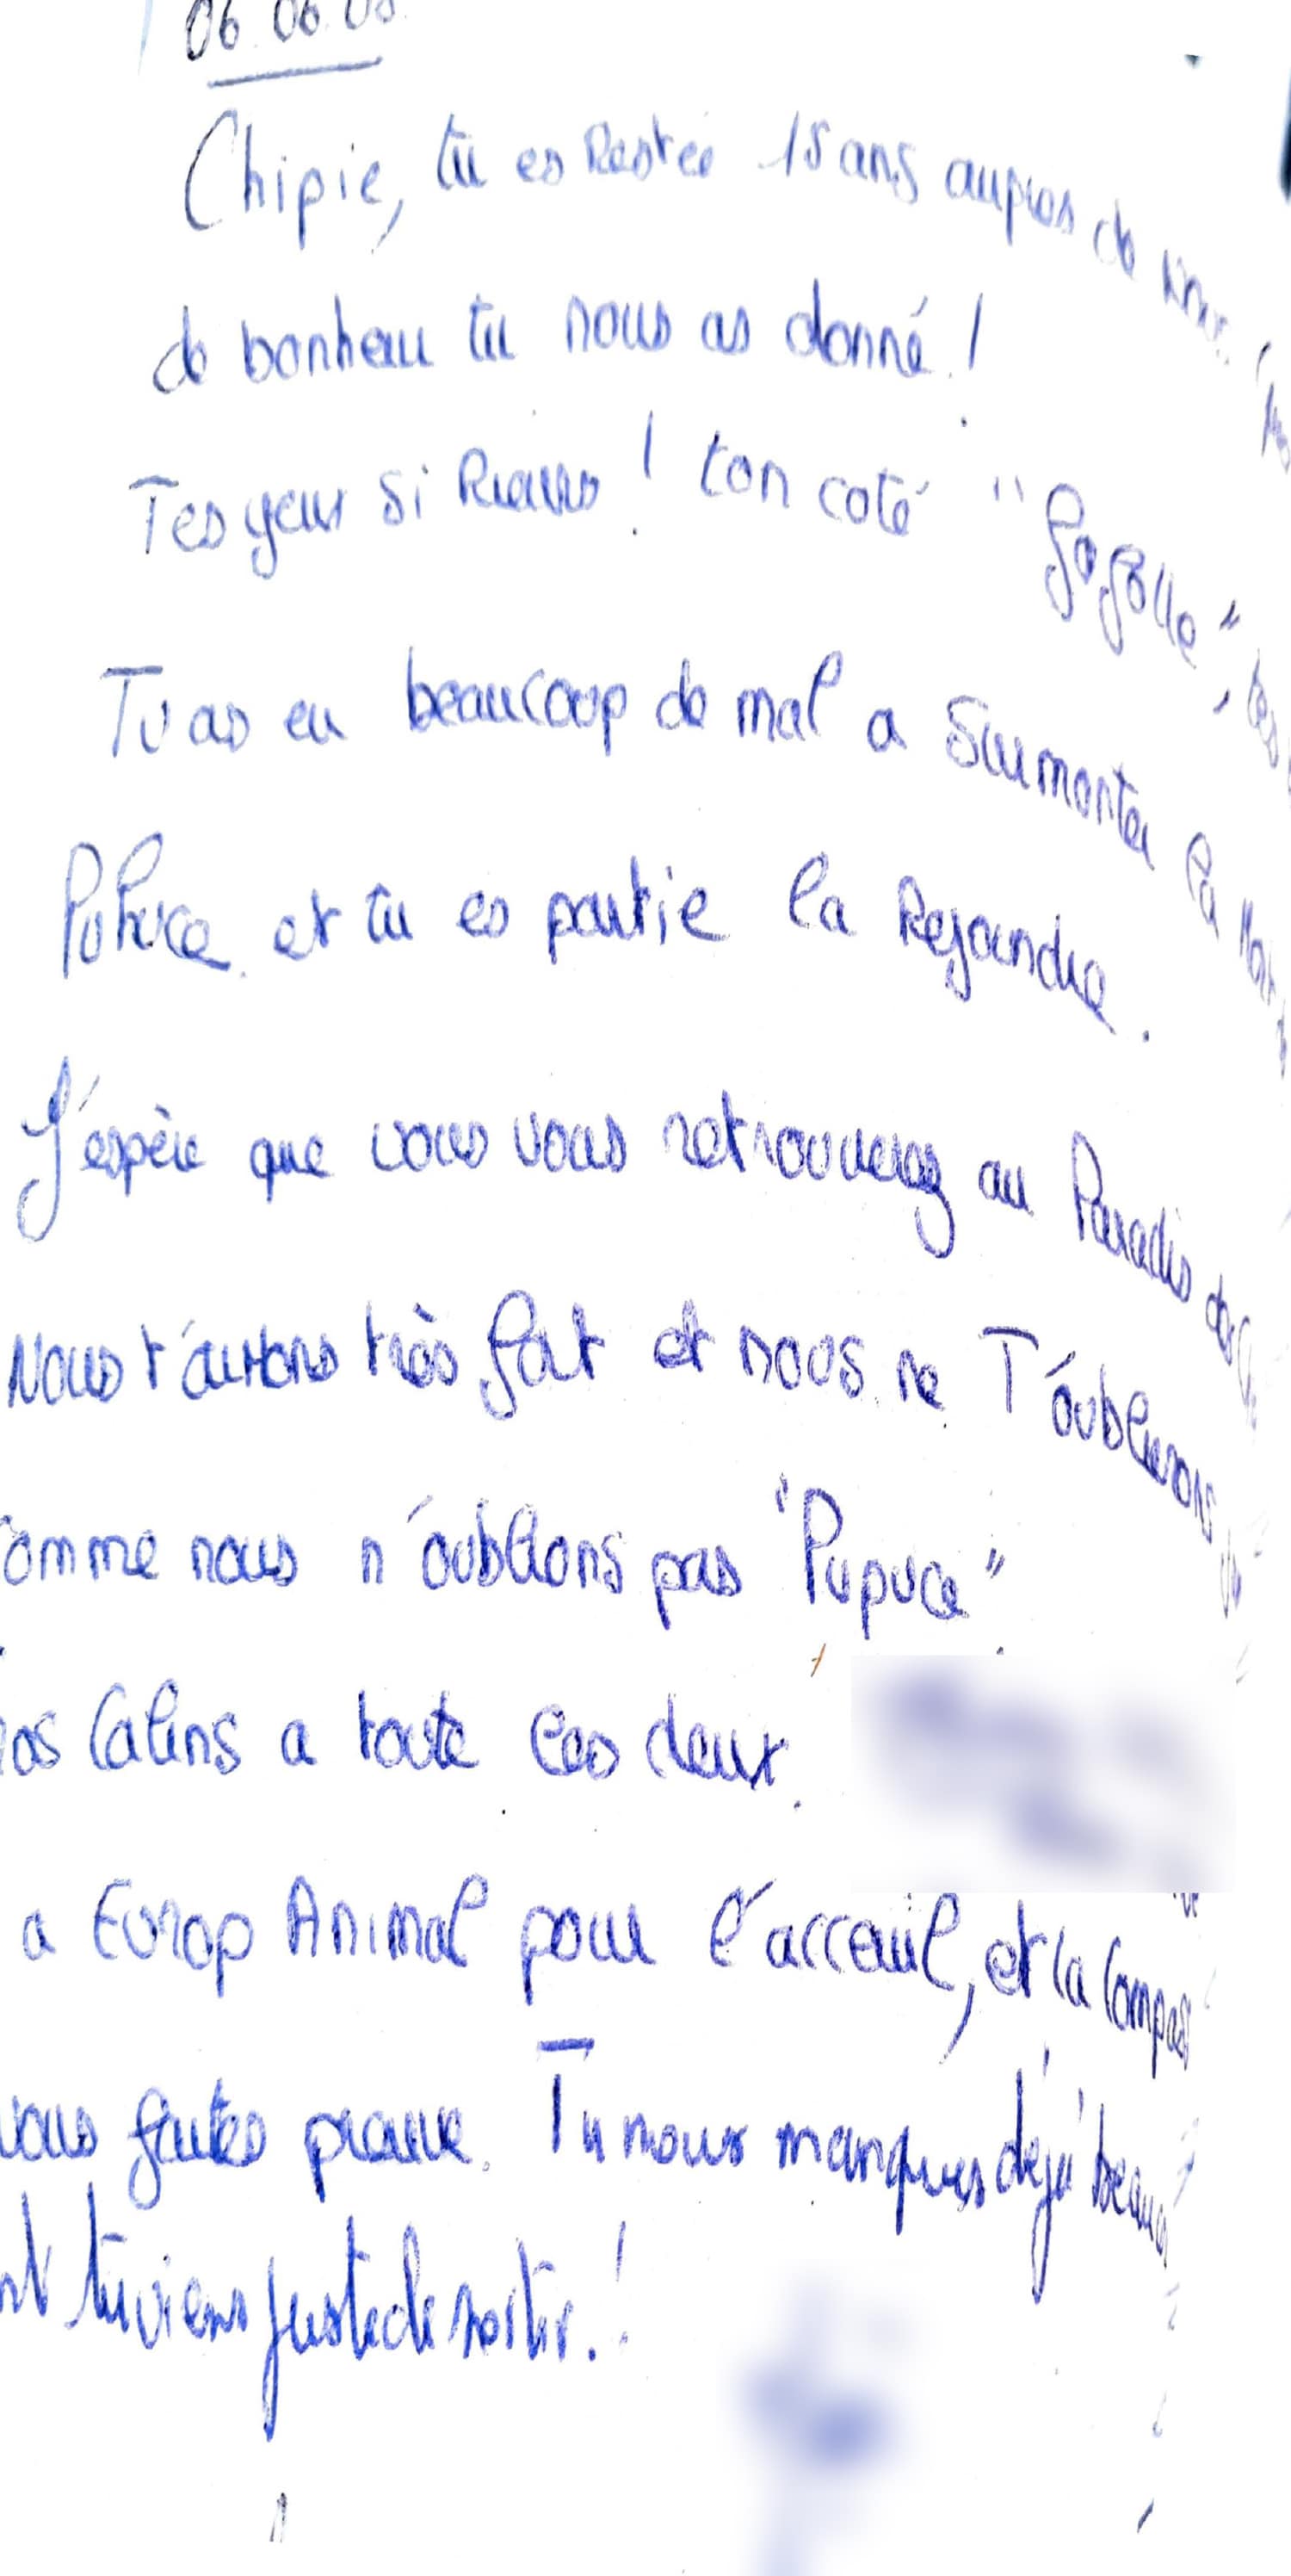 06.06.08
Chipie, tu es Restée 15 ans aupres de nous.
de bonheur tu nous as donné !
Tes yeux si Rieurs ! ton coté "fofolle", tes
Tu as eu beaucoup de mal a surmonter la Mort
Pupuce et tu es partie la Rejoindre.
J'espère que vous vous retrouverez au Paradis des
Nous t'aimons très fort et nous ne T'oublierons
comme nous n'oublions pas "Pupuce"
Calins a toute les deux.
a Europ Animal pour l'acceuil, et la Compas
vous faites preuve. Tu nous manques déjà beauc
tu viens juste de partir. !